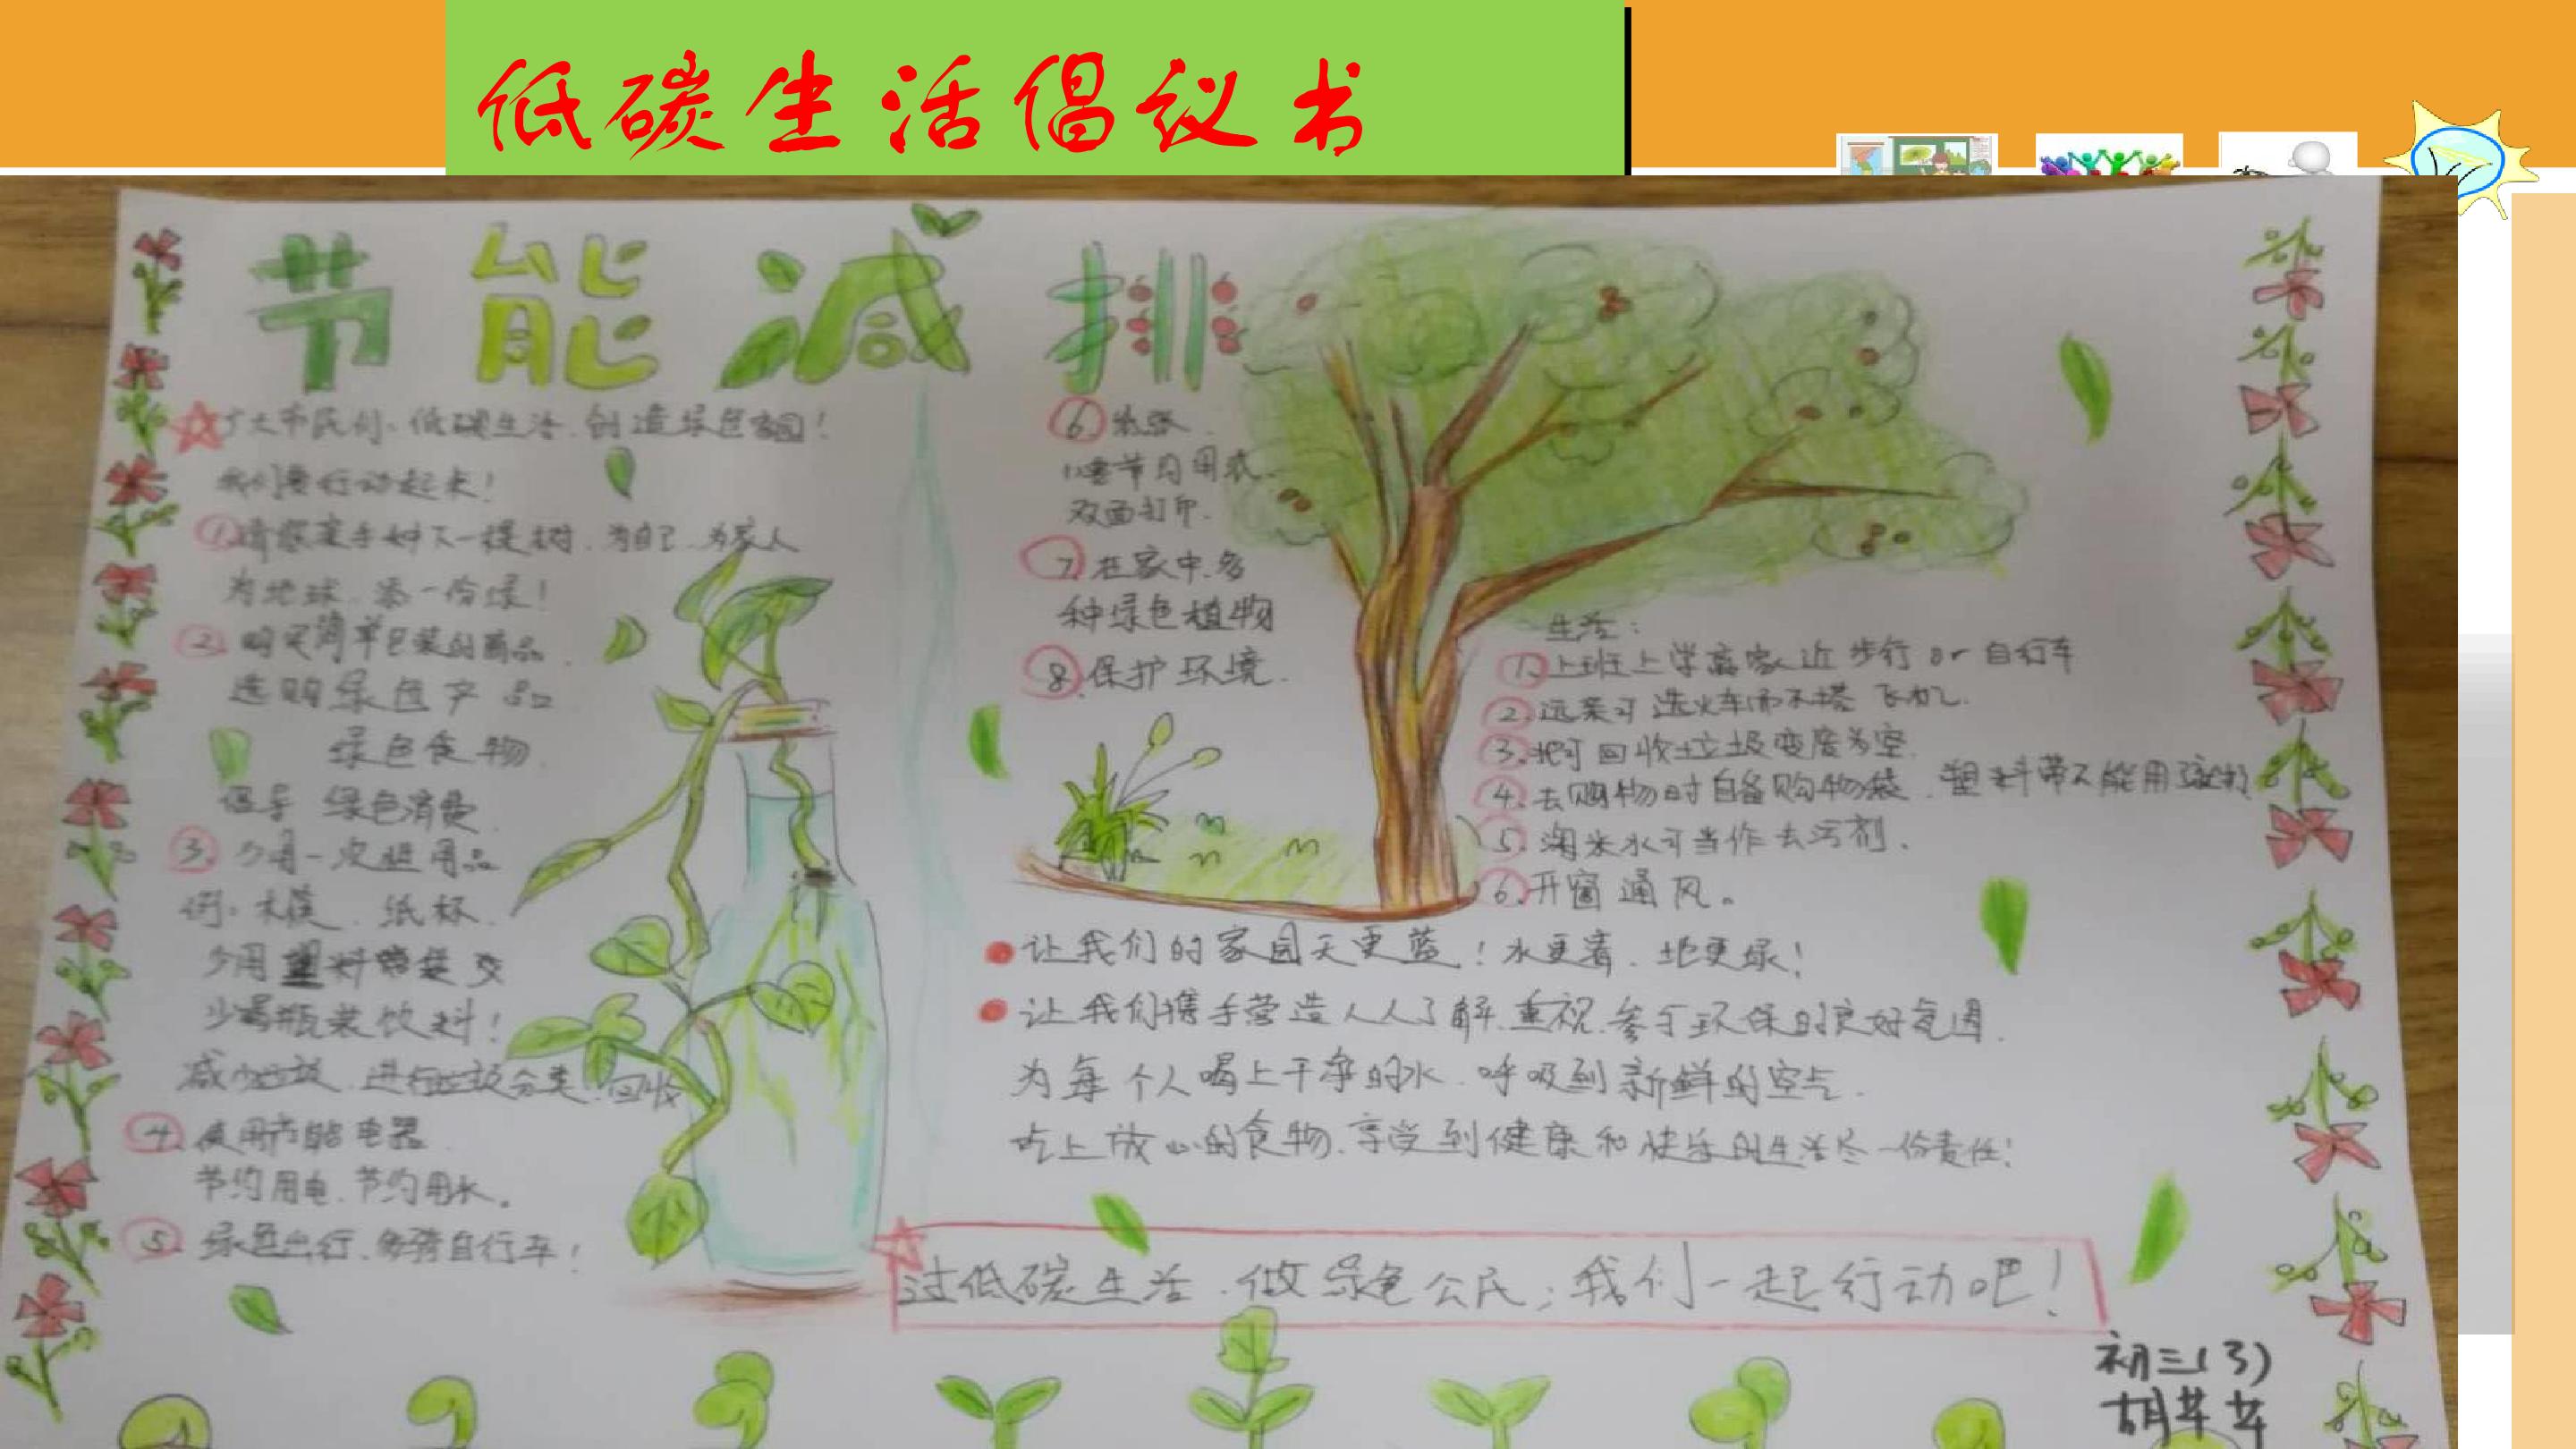 低碳生活倡议书
节能减排
广大市民们：低碳生活，创造绿色家园！
我们要行动起来！
①请您亲手种下一棵树，为自己、为家人
为地球，添一份绿！
②购买简单包装的商品，
选购绿色产品
绿色食物，
倡导 绿色消费，
③少用一次性用品
例：木筷、纸杯，
少用塑料袋
少喝瓶装饮料！
减少垃圾，进行垃圾分类，回收
④使用节能电器，
节约用电、节约用水。
⑤绿色出行，多骑自行车！
⑥纸张，
要节约用纸，
双面打印。
⑦在家中，多
种绿色植物
⑧保护环境。
生活：
①上班上学离家近步行or自行车
②远 可选火车而不搭飞机。
③把可回收垃圾变废为宝。
④去购物时自备购物袋，塑料带不能用
⑤淘米水可当作去污剂。
⑥开窗通风。
让我们的家园天更蓝！水更清，地更绿！
让我们携手营造人人了解、重视、参于环保的良好氛围，
为每个人喝上干净的水，呼吸到新鲜的空气，
吃上放心的食物，享受到健康和快乐的生活尽一份责任！
过低碳生活，做绿色公民；我们一起行动吧！
初三(3)
胡苹苹